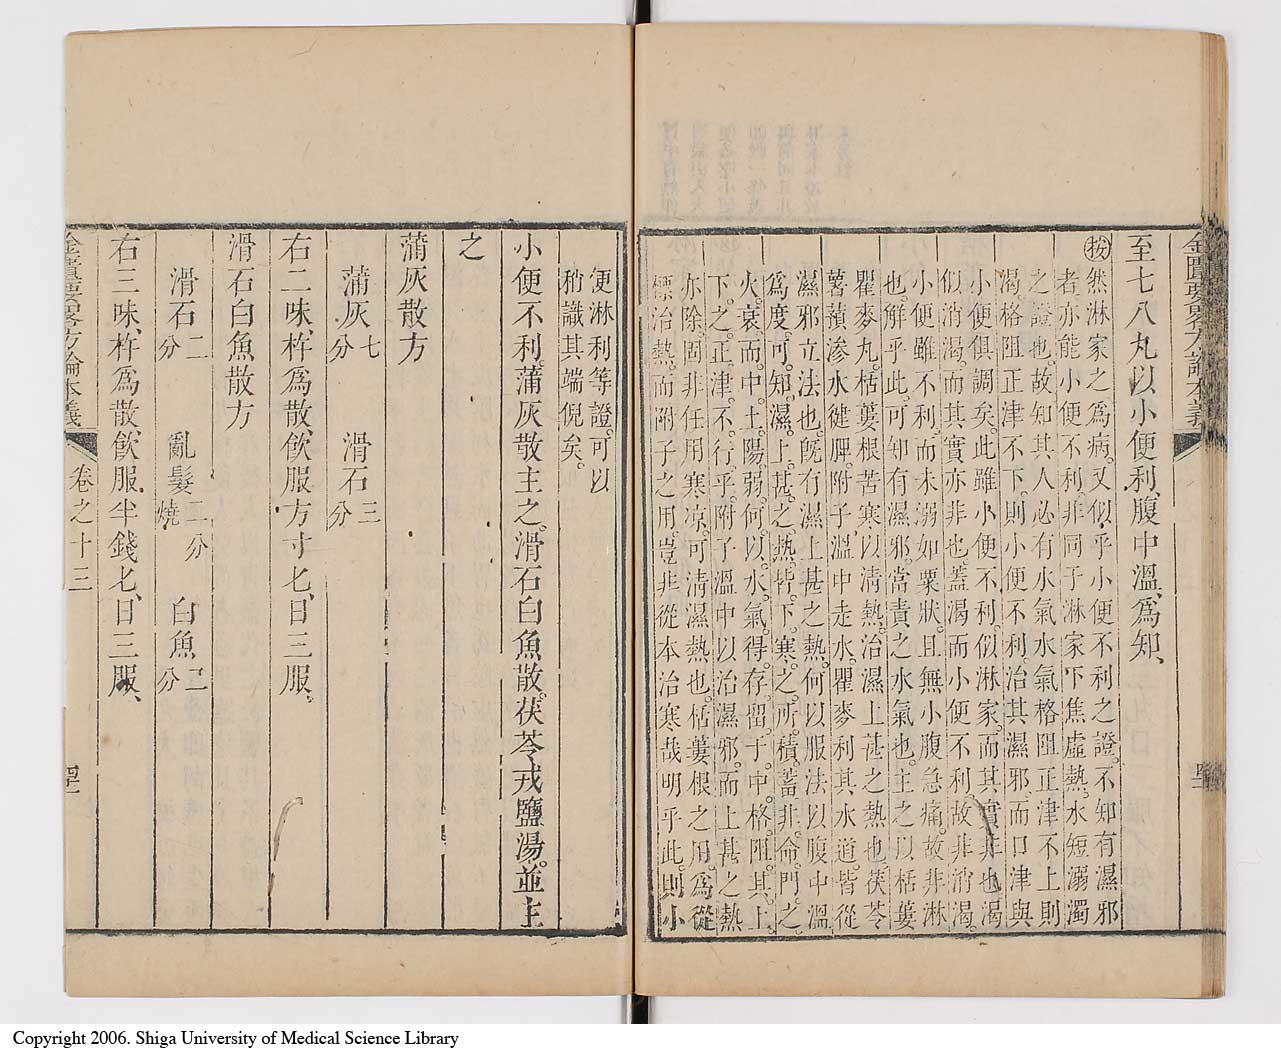 金匱要略方論本義
至七八丸以小便利腹中溫爲知、
按然淋家之爲病。又似乎小便不利之證。不知有濕邪
者亦能小便不利。非同于淋家下焦虛熱。水短溺濁
之證也。故知其人必有水氣水氣格阻正津不上則
渴格阻正津不下。則小便不利。治其濕邪。而口津與
小便俱調矣。此雖小便不利。似淋家。而其實非也渴
似消渴。而其實亦非也。蓋渴而小便不利。故非消渴。
小便雖不利。而未溺如粟狀。且無小腹急痛。故非淋
也。解乎此。可知有濕邪。當責之水氣也。主之以栝蔞
瞿麥丸。栝蔞根苦寒以清熱。治濕上甚之熱也。茯苓
薯蕷滲水健脾。附子溫中走水。瞿麥利其水道。皆從
濕邪立法也。旣有濕上甚之熱。何以服法以腹中溫
爲度。可知濕上甚之熱皆下寒之所積蓄非命門之
火衰而中土陽弱。何以水氣得存畱于中。格阻其上
下之正津。不行乎。附子溫中以治濕邪。而上甚之熱
亦除。固非任用寒凉。可淸濕熱也。栝蔞根之用。爲從
標治熱。而附子之用。豈非從本治寒哉明乎此。則小
便淋利等證。可以
稍識其端倪矣。
小便不利。蒲灰散主之。滑石白魚散。茯苓戎鹽湯。並主
之
蒲灰散方
蒲灰七分 滑石三分
右二味、杵爲散、飮服方寸匕、日三服。
滑石白魚散方
滑石二分 亂髮二分燒 白魚二分
右三味、杵爲散、飮服半錢匕、日三服、
金匱要略方論本義 卷之十三